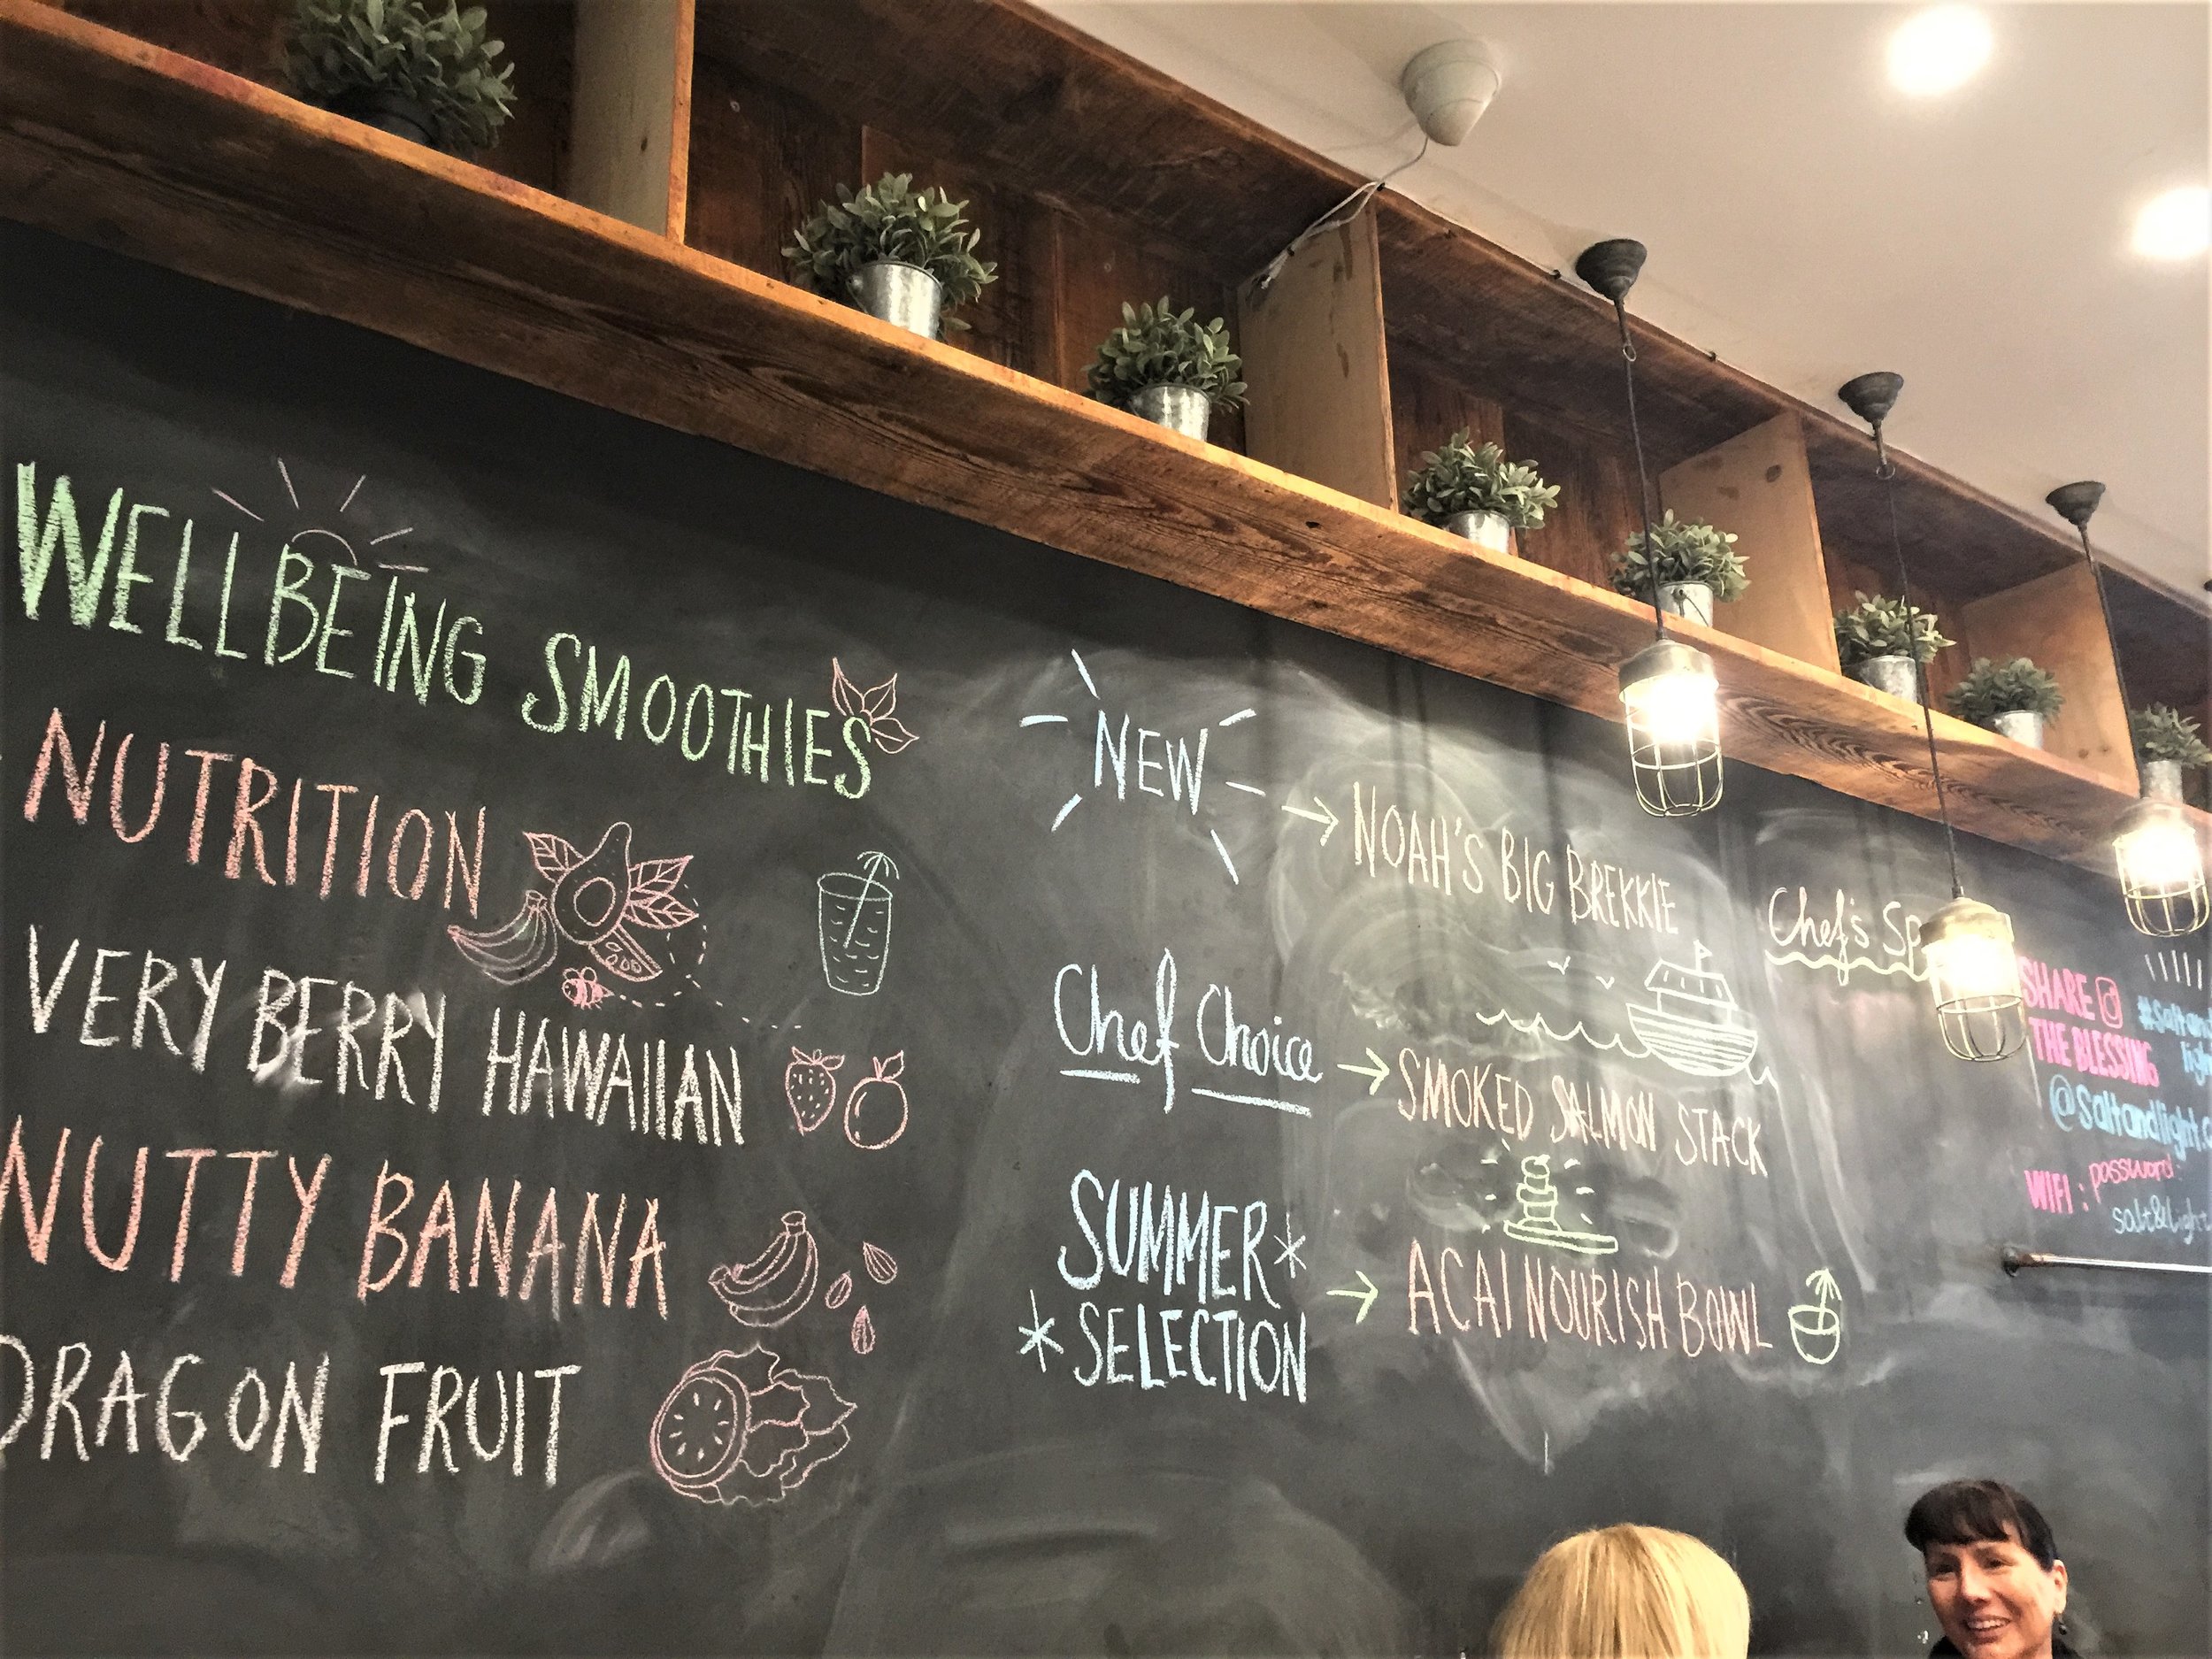 WELLBEING SMOOTHIES
NUTRITION
VERY BERRY HAWAIIAN
NUTTY BANANA
DRAGON FRUIT
NEW
NOAH'S BIG BREKKIE
Chef Choice
SMOKED SALMON STACK
SUMMER
SELECTION
ACAI NOURISH BOWL
Chef's
SHARE
THE BLESSING
WIFI: password